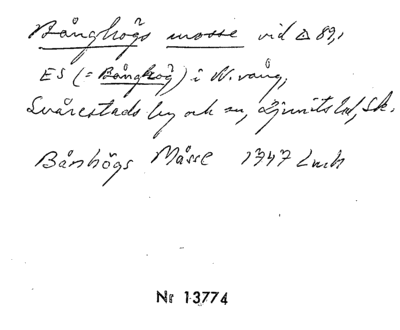 Bånghögs mosse vid △ 89,1
ES (= Bånghög) i N. vång,
Svårestads by och sn, Ljunits hd, Sk.
Bånhögs Måsse 1747 Lnk
Nr 13774